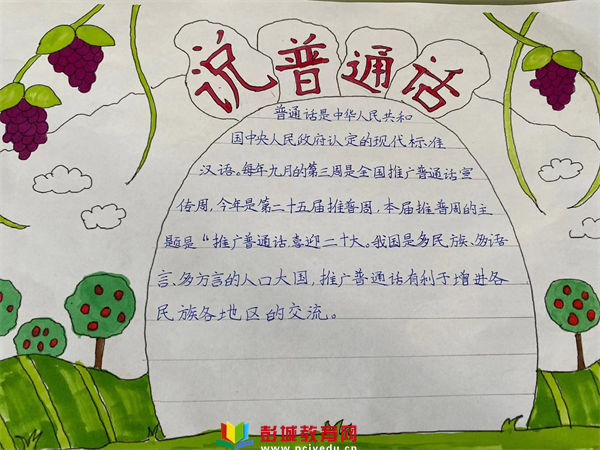 说普通话
普通话是中华人民共和
国中央人民政府认定的现代标准
汉语。每年九月的第三周是全国推广普通话宣
传周,今年是第二十五届推普周,本届推普周的主
题是“推广普通话,喜迎二十大。我国是多民族、多语
言、多方言的人口大国,推广普通话有利于增进各
民族各地区的交流。
彭城教育网
www.pcjyedu.cn